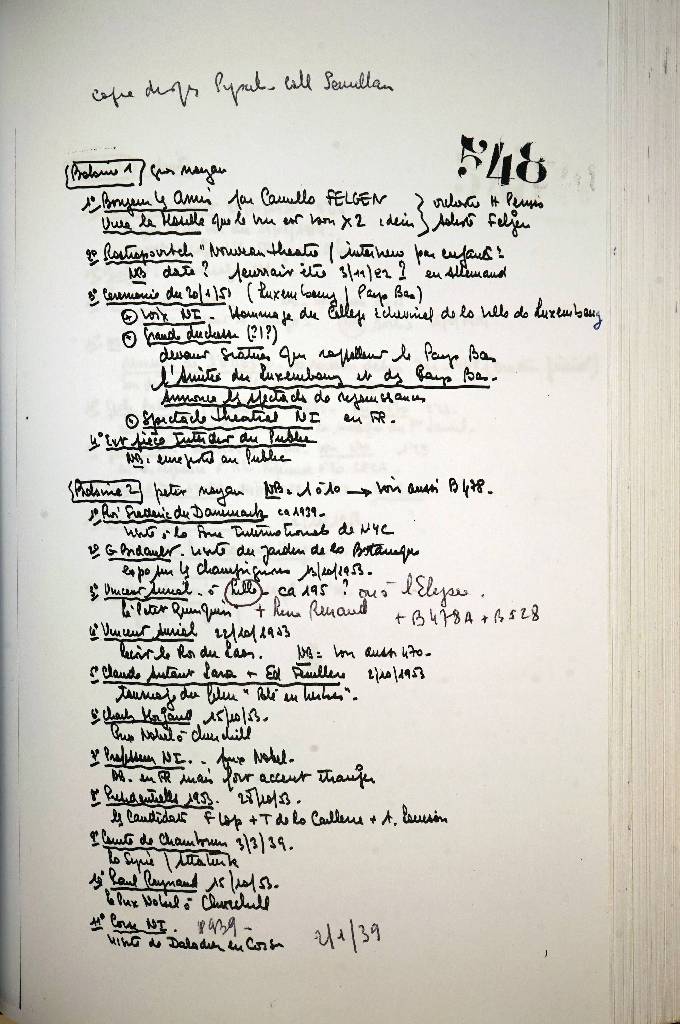 548
Bobine 1
1° Bonjour les Amis par Camillo FELGEN orchestre H
Vive la Moselle que le vin est bon X2 idem soliste Felgen
2° Rostropovitch "Nouveau theatre / interview par enfants?
NB date? pourrait être 3/11/82? en Allemand
3° Ceremonie du 20/1/51 (Luxembourg / Pays Bas)
Voix NI. Hommage du College echevinal de la ville de Luxembourg
Grande duchesse (?!?)
devant statues qui rappellent le Pays Bas
l'Amitié du Luxembourg et des Pays Bas.
Annonce les spectacles de rejouissances
Spectacle theatral NI en FR.
4° Ext pièce Interdit au Public
NB: au Public
Bobine 2 NB = 1 à 10 → Voir aussi B478.
1° Roi Frederic du Danemark ca 1939.
Visite à la Foire Internationale de NYC
2° G Bidault. visite du Jardin de la Botanique
expo sur les champignons 13/10/1953.
3° Vincent Auriol. à Lille ca 195 ? ou à l'Elysee.
"le P'tit Quinquin" + Line Renaud + B478A + B528
4° Vincent Auriol 22/10/1953
reçoit le Roi du Laos. NB = Voir aussi 470.
5° Claude Autant Lara + Ed Feuillere 2/10/1953
tournage du film "Blé en herbe".
6° Charles Morgand 15/10/53.
Prix Nobel à Churchill
7° Professeur NI. prix Nobel.
NB. en FR mais fort accent etranger
8° Presidentielles 1953. 28/10/53.
les candidats
9° Comte de Chambrun 3/3/39.
la Syrie / Ataturk
10° Paul Raynaud 15/10/53.
le Prix Nobel à Churchill
11° Corse NI. 1939 - 2/1/39
visite de Daladier en Corse